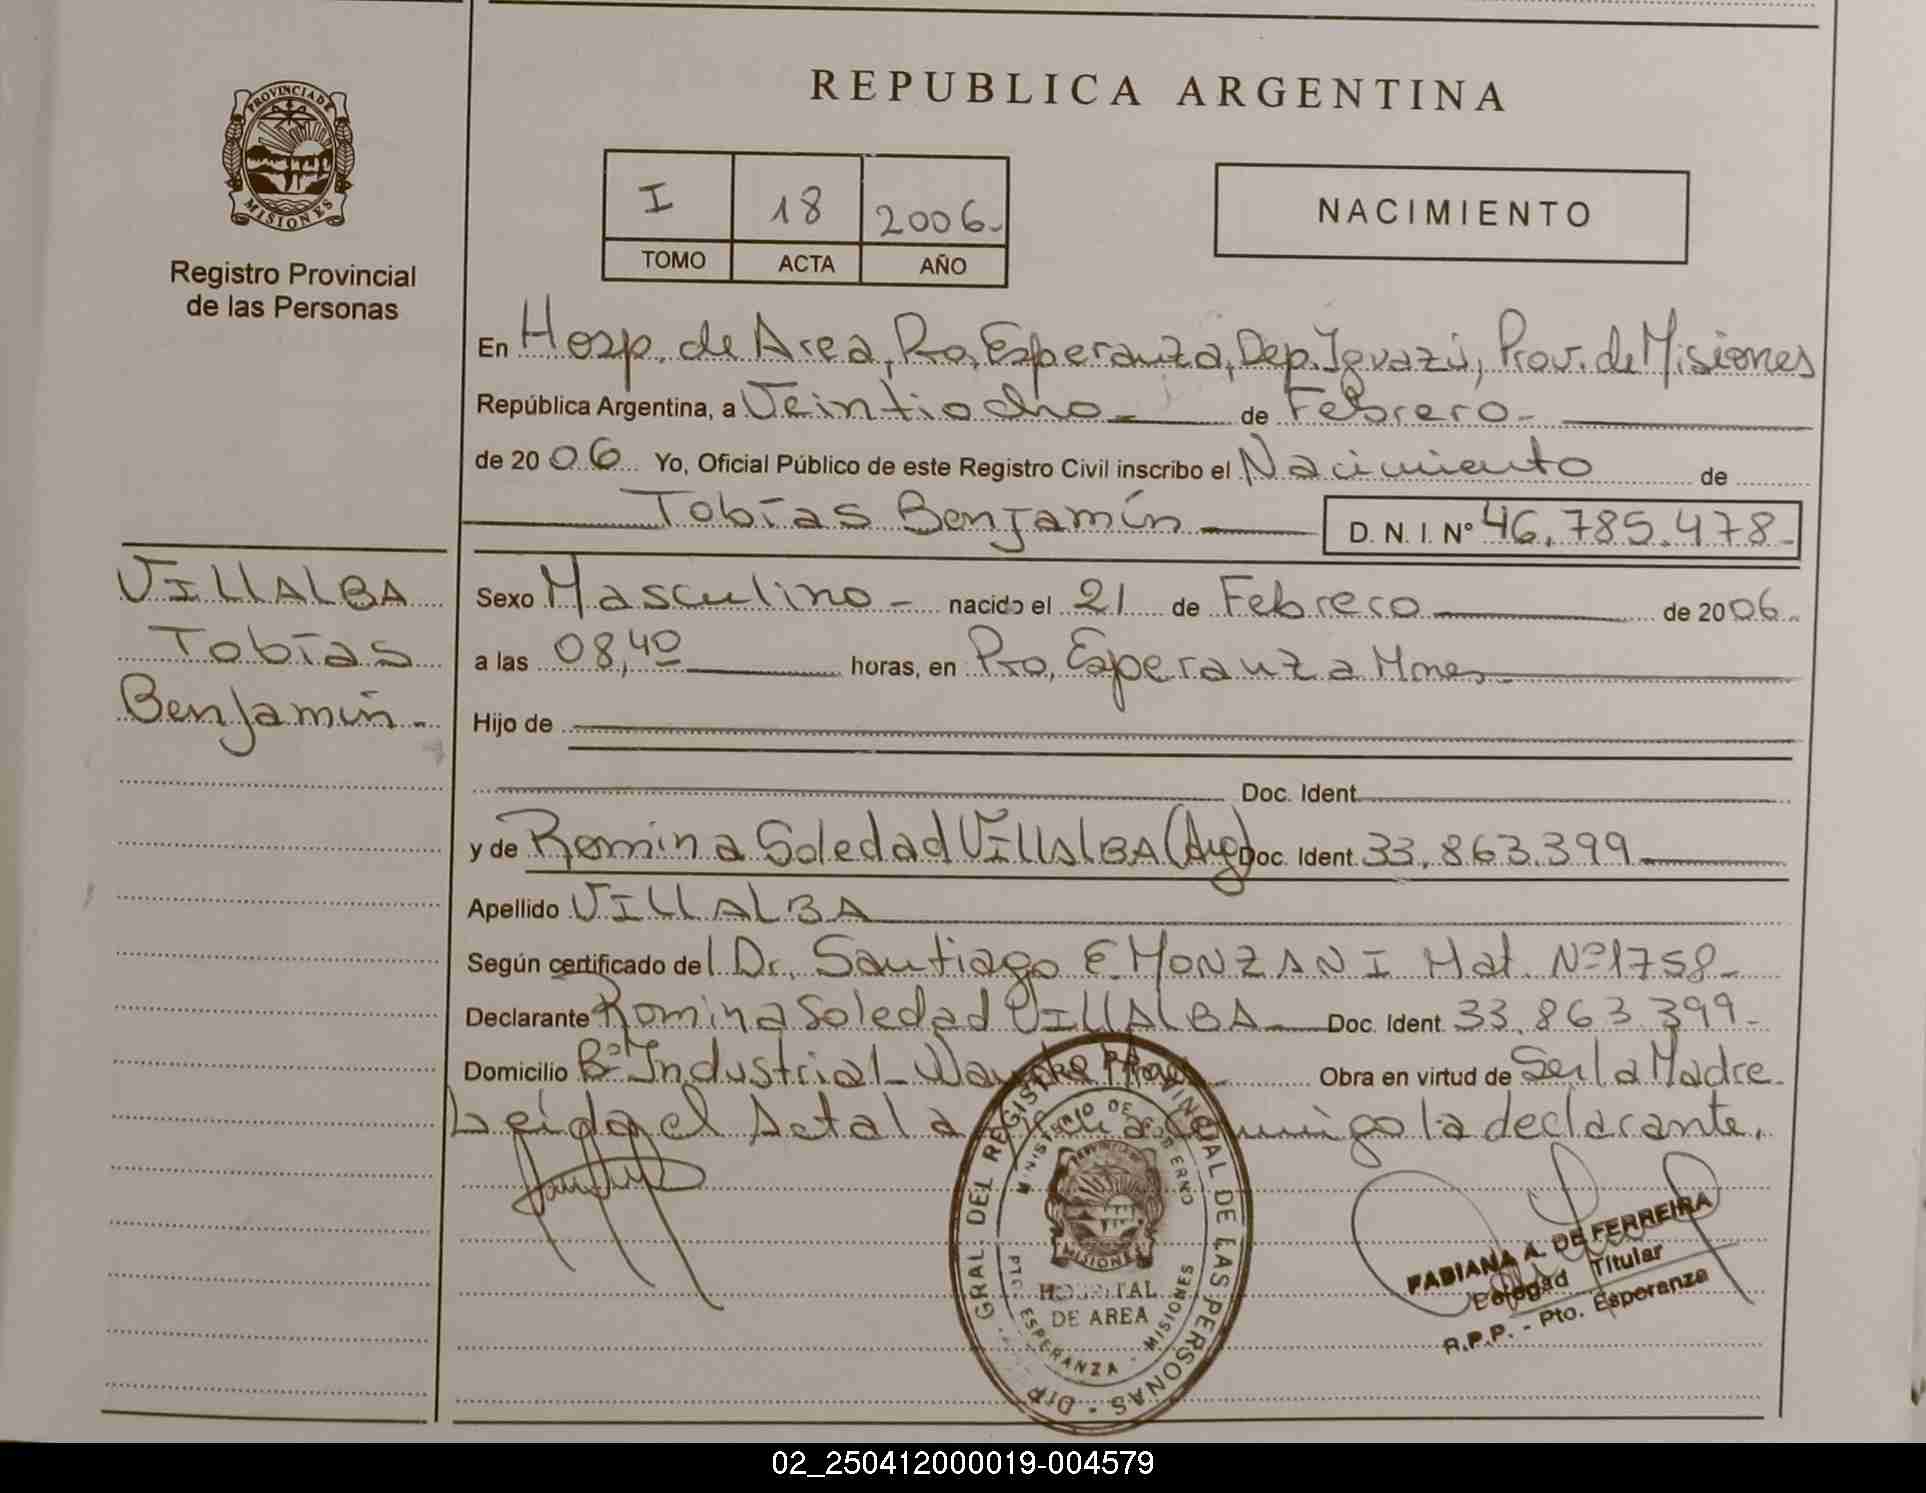 REPUBLICA ARGENTINA
PROVINCIA DE
MISIONES
Registro Provincial
de las Personas
I 18 2006.-
TOMO ACTA AÑO
NACIMIENTO
En Hosp. de Area, Pto. Esperanza, Dep. Iguazú, Prov. de Misiones
República Argentina, a Veintiocho de Febrero.-
de 2006 Yo, Oficial Público de este Registro Civil inscribo el Nacimiento de
Tobías Benjamín D. N. I. Nº 46.785.478.-
VILLALBA
Tobías
Benjamín.-
Sexo Masculino.- nacido el 21 de Febrero de 2006.-
a las 08,40 horas, en Pto. Esperanza Mnes.
Hijo de
Doc. Ident.
y de Romina Soledad VILLALBA (Arg) Doc. Ident. 33.863.399.-
Apellido VILLALBA
Según certificado del Dr. Santiago E. MONZANI Mat. Nº 1758.-
Declarante Romina Soledad VILLALBA Doc. Ident. 33.863.399.-
Domicilio Bº Industrial - Obra en virtud de Ser la Madre.
Leída el Acta la conmigo la declarante.
GRAL. DEL REGISTRO PROVINCIAL DE LAS PERSONAS - DIR.
MINISTERIO DE GOBIERNO
PROVINCIA DE
MISIONES
HOSPITAL
DE AREA
PTO. ESPERANZA - MISIONES
FABIANA A. DE FERREIRA
Titular
R.P.P. - Pto. Esperanza
02_250412000019-004579